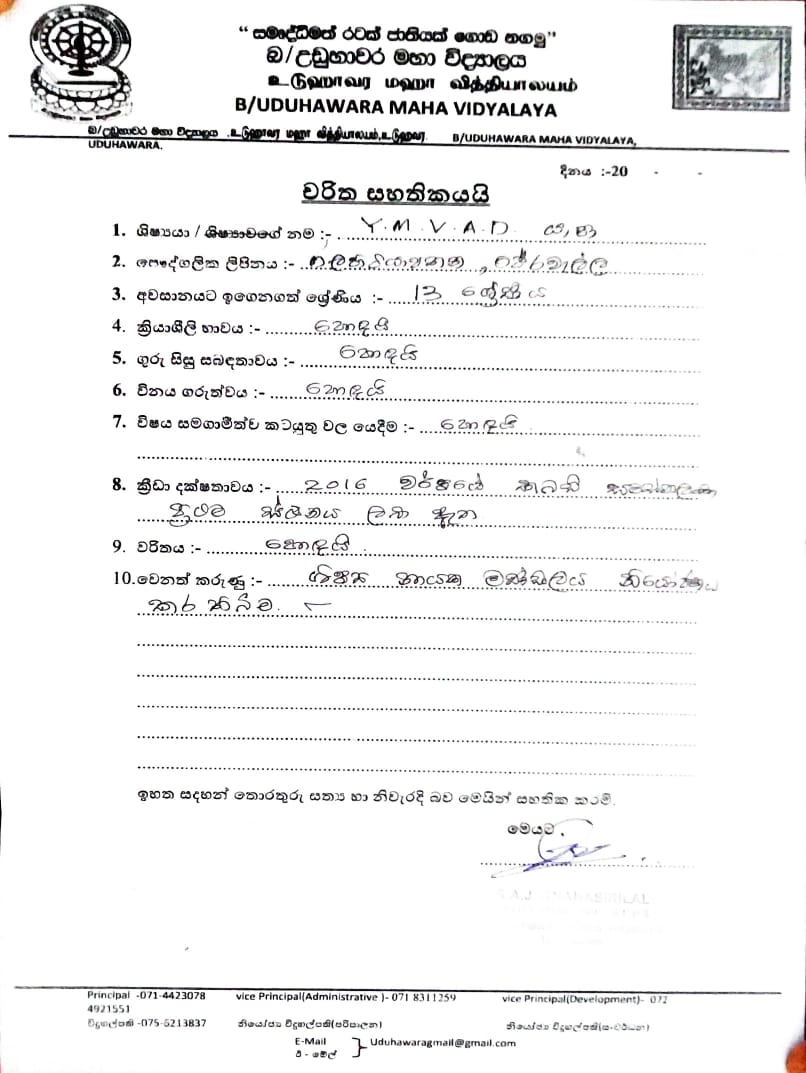 “ සමෘද්ධිමත් රටක් ජාතියක් ගොඩ නගමු”
බ/උඩුහාවර මහා විද්‍යාලය
உடுஹாவர மஹா வித்தியாலயம்
B/UDUHAWARA MAHA VIDYALAYA
බ/උඩුහාවර මහා විද්‍යාලය .உடுஹாவர மஹா வித்தியாலயம்,உடுஹாவர. B/UDUHAWARA MAHA VIDYALAYA,
UDUHAWARA.
දිනය :-20 - -
චරිත සහතිකයයි
1. ශිෂ්‍යයා / ශිෂ්‍යාවගේ නම :- Y.M.V.A.D.
2. පෞද්ගලික ලිපිනය :-
3. අවසානයට ඉගෙනගත් ශ්‍රේණිය :- 13 ශ්‍රේණිය
4. ක්‍රියාශීලි භාවය :- හොඳයි
5. ගුරු සිසු සබඳතාවය :- හොඳයි
6. විනය ගරුත්වය :- හොඳයි
7. විෂය සමගාමීත්ව කටයුතු වල යෙදීම :- හොඳයි
8. ක්‍රීඩා දක්ෂතාවය :- 2016 වර්ෂයේ කබඩි
ප්‍රථම ස්ථානය ලබා ඇත
9. චරිතය :- හොඳයි
10.වෙනත් කරුණු :- ශිෂ්‍ය නායක මණ්ඩලය නියෝජනය
කර තිබීම.
ඉහත සදහන් තොරතුරු සත්‍ය හා නිවැරදි බව මෙයින් සහතික කරමි.
මෙයට,
Principal -071-4423078 vice Principal(Administrative )- 071 8311259 vice Principal(Development)- 072
4921551
විදුහල්පති -075-6213837 නියෝජ්‍ය විදුහල්පති(පරිපාලන) නියෝජ්‍ය විදුහල්පති(සංවර්ධන)
E-Mail Uduhawaragmail@gmail.com
ඊ - මේල්